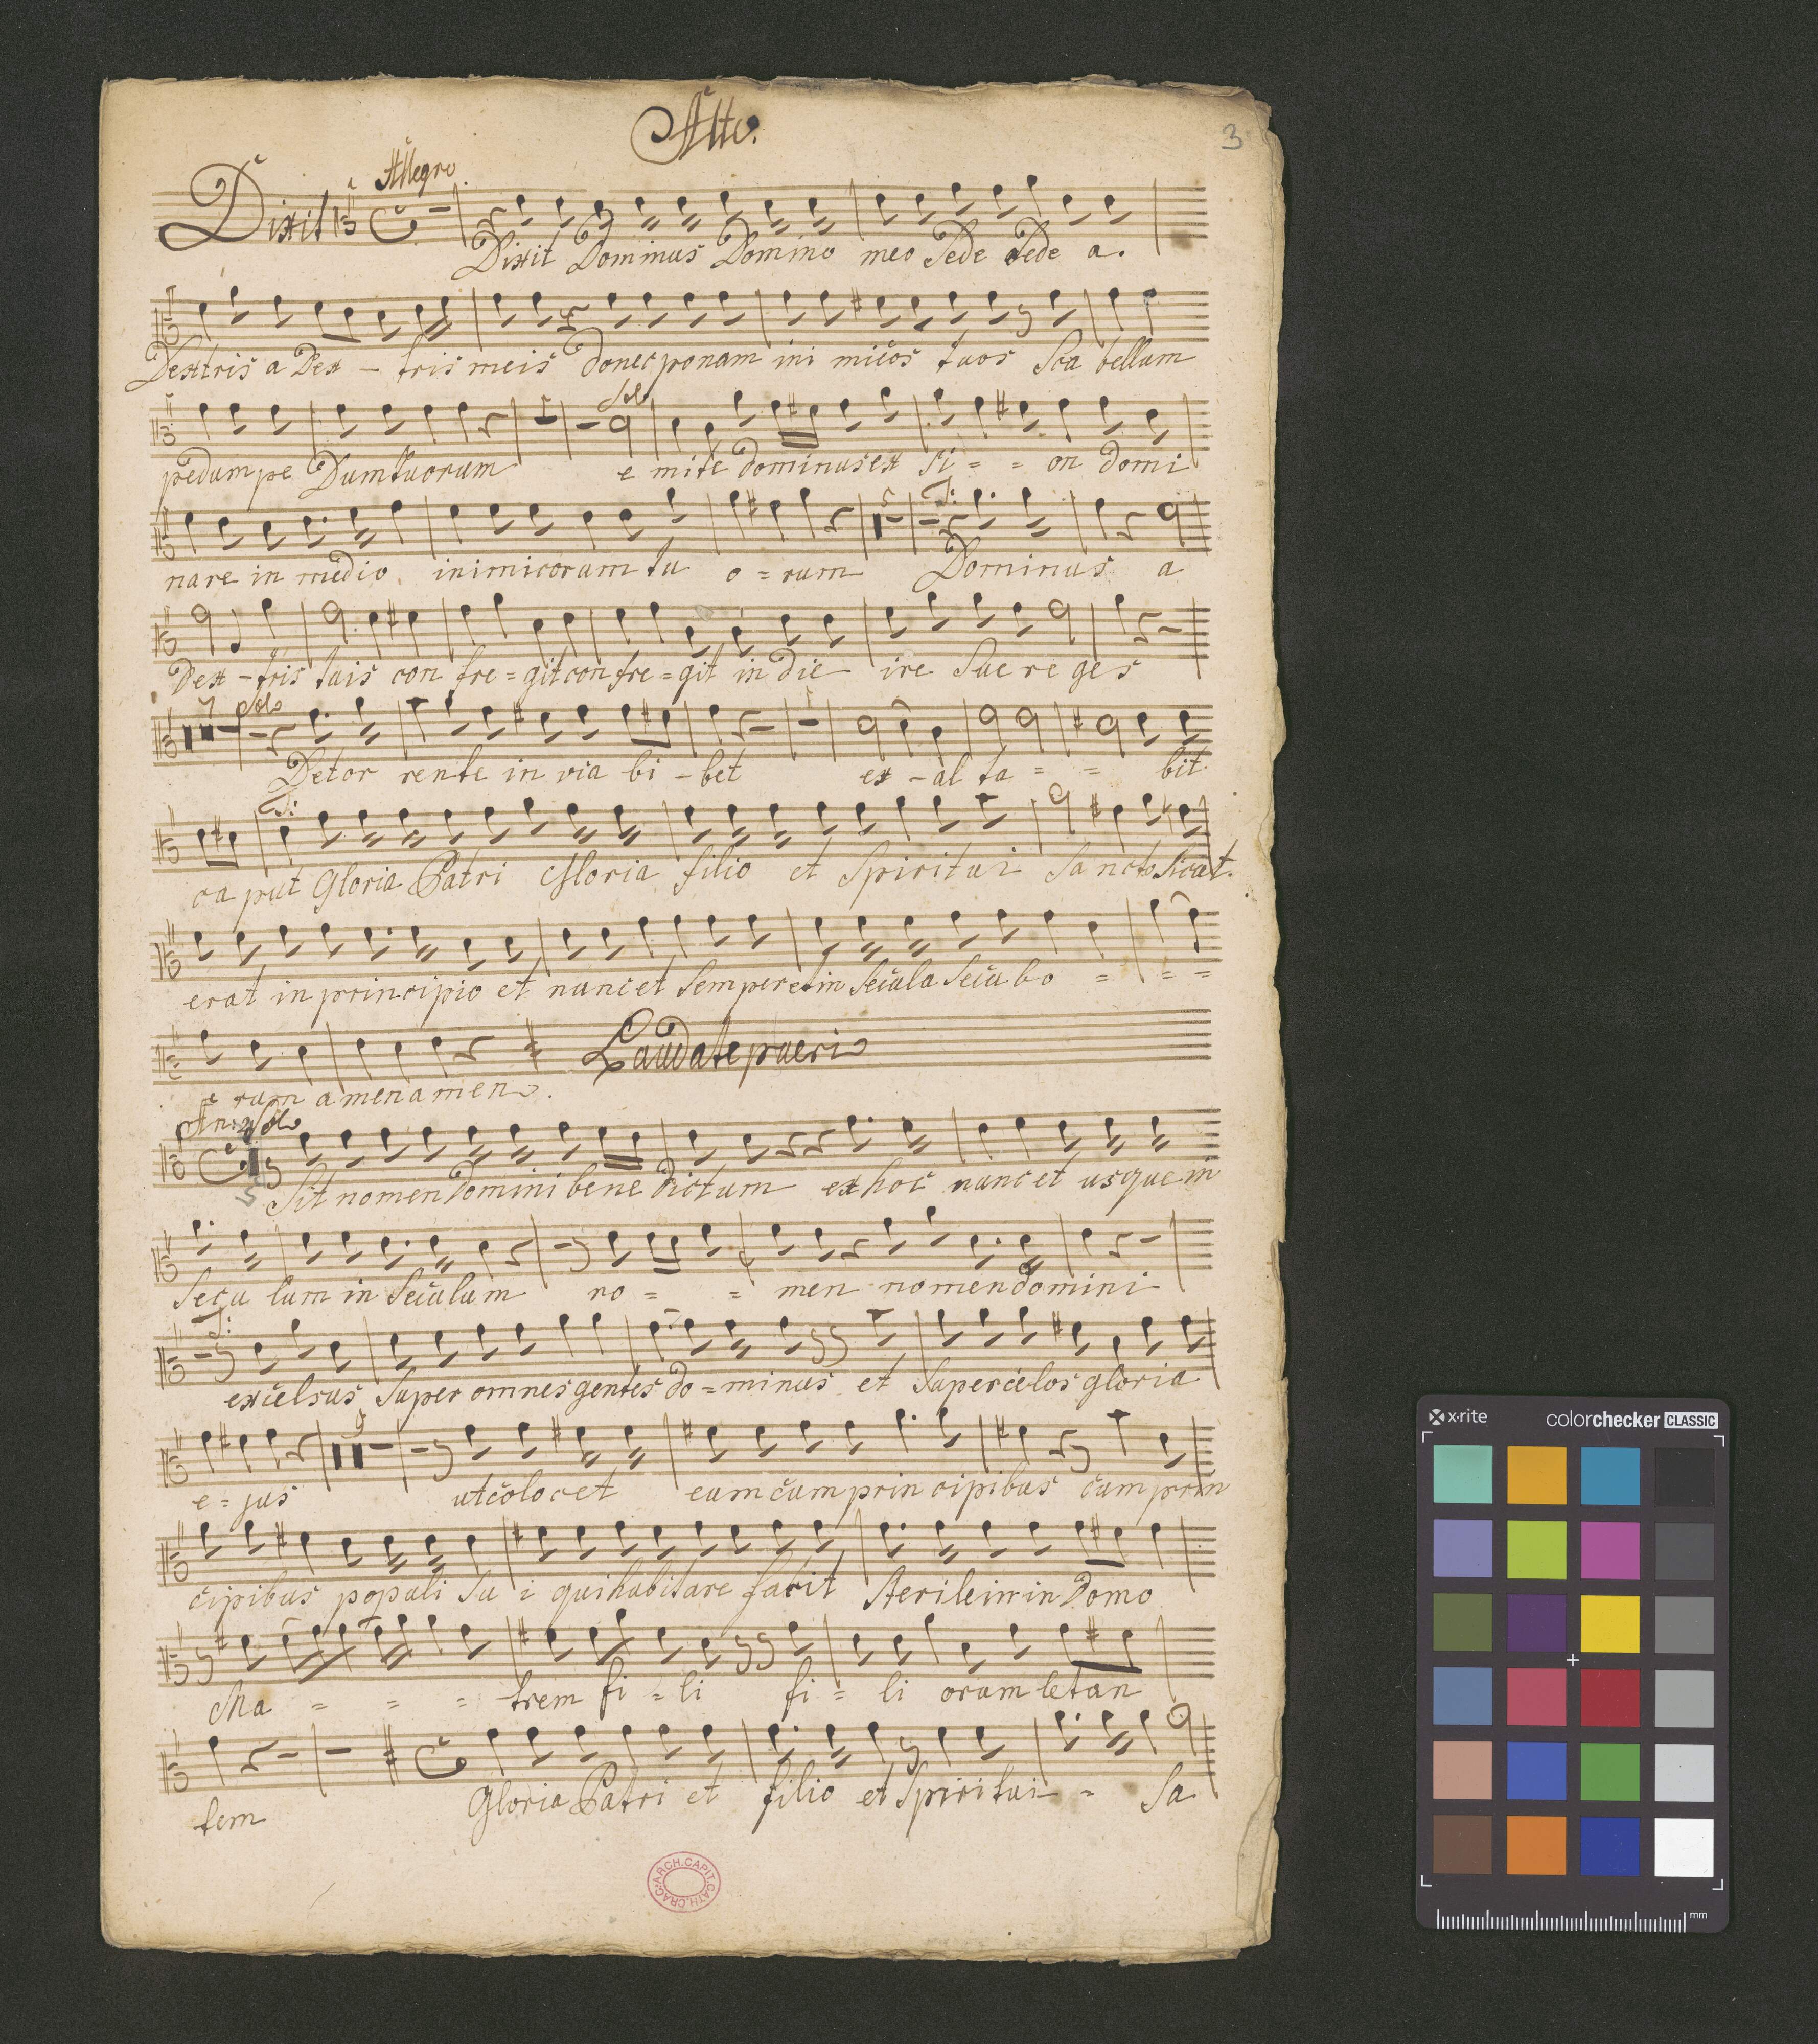 Alto.
3
Allegro.
Dixit
Dixit Dominus Domino meo Sede Sede a.
Dextris a Dex - tris meis donec ponam ini micos tuos Sca bellum
Solo
pedum pe Dum tuorum e mite dominus ex Si = = on domi
T:
nare in medio inimicorum tu o = rum Dominus a
Dex - tris tuis con fre = git con fre = git in die ire Sue re ges
7 Solo
Detor rente in via bi - bet ex - al ta = = bit
T:
ca put Gloria Patri Gloria filio et Spiritui Sancto Sicut.
erat in principio et nunc et Semper et in Secula Secu lo = = =
Laudate pueri
rum amen amen.
Solo
Sit nomen Domini bene dictum ex hoc nunc et usque in
Secu lum in Seculum no = = men nomen domini
T:
excelsus Super omnes gentes do = minus et Super celos gloria
9
e = jus ut colocet eum cum prin cipibus cum prin
cipibus populi Su i qui habitare facit Sterilem in Domo
Ma = = = trem fi = li fi = li orum letan
tem Gloria Patri et filio et Spiritui = Sa
ARCH.CAPIT.CATH.CRAC.
x·rite colorchecker CLASSIC
mm